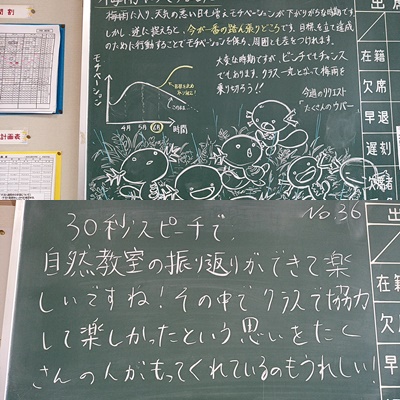 梅雨に入り、天気の悪い日も増えモチベーションが下がりがちな時期です。
しかし、逆に捉えると、今が一番の踏ん張りどころです。目標を立て達成
のために行動することでモチベーションを保ち、周囲とも差をつけれます。
大変な時期ですが、ピンチでもチャンス
でもあります。クラス一丸となって梅雨
を乗り切ろう!!
モチベーション
4月 5月 6月 時間
今週のリクエスト
「たくさんのウパー」
出
在籍
欠席
早退
遅刻
No.36
30秒スピーチで、
自然教室の振り返りができて楽
しいですね!その中でクラスで協力
して楽しかったという思いをたく
さんの人がもってくれているのもうれしい!
出
在籍
欠
早